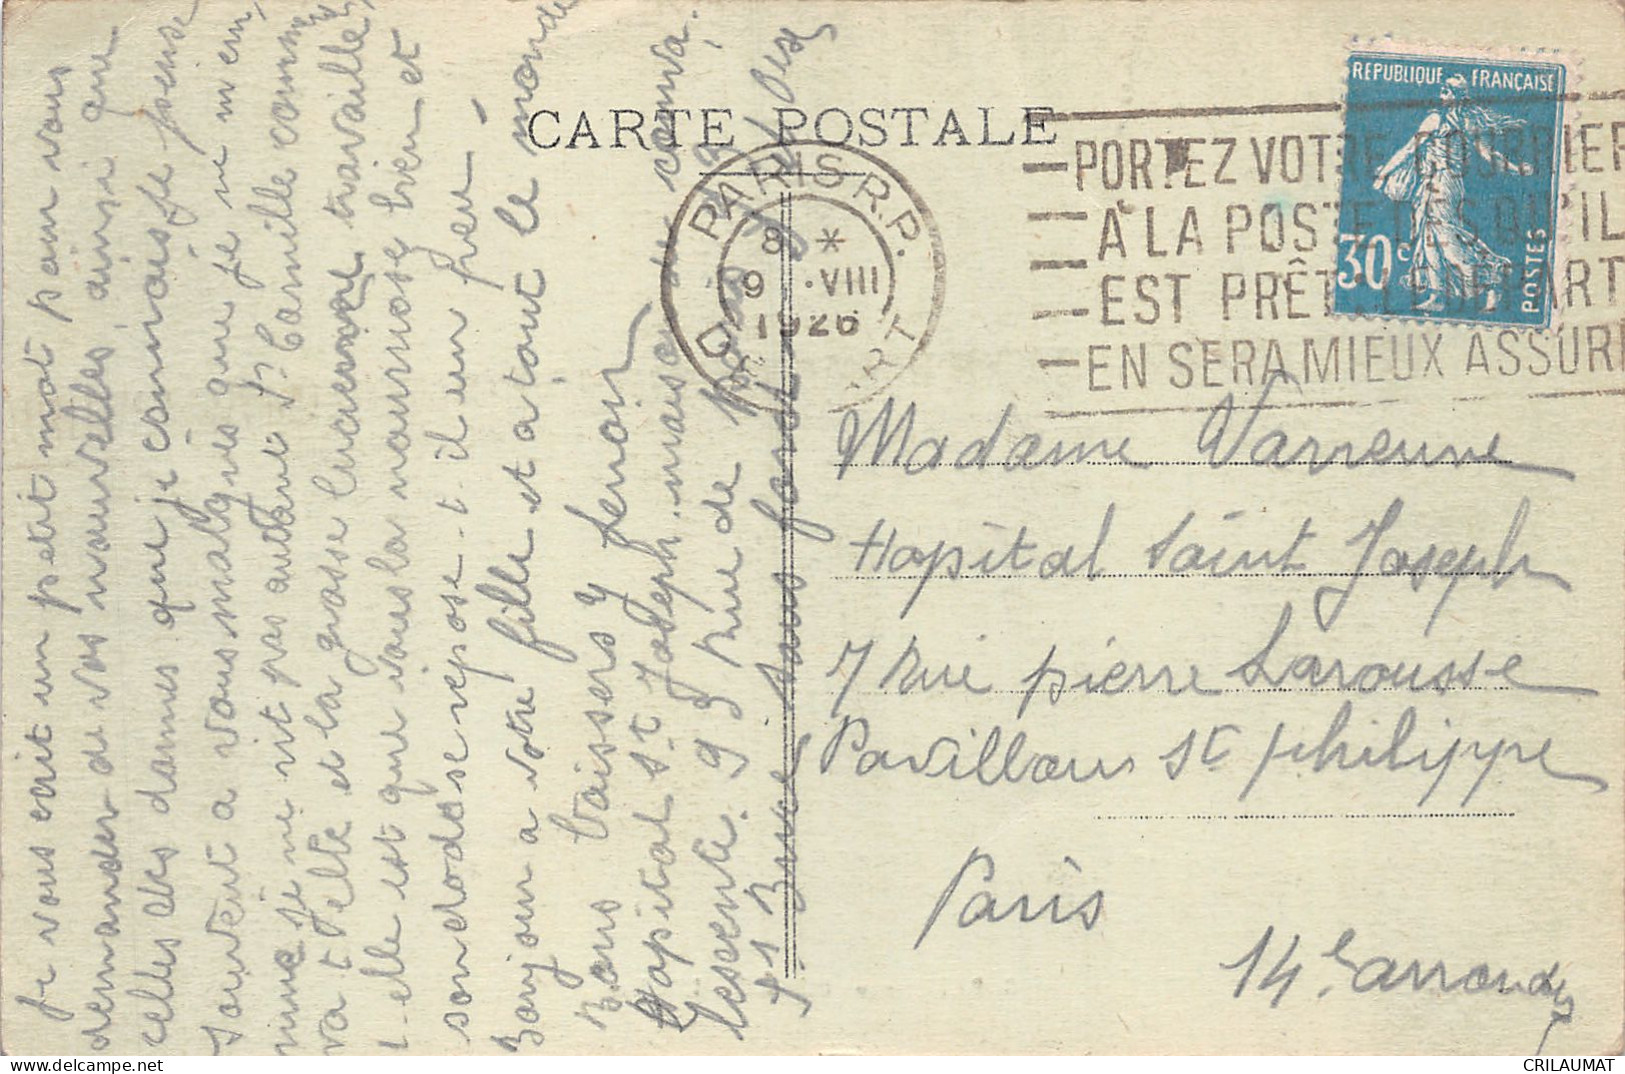 CARTE POSTALE
REPUBLIQUE FRANÇAISE
30c
POSTES
PARIS R.P.
8 *
9 ·VIII
1926
DÉPART
PORTEZ VOTRE COURRIER
A LA POSTE DÈS QU'IL
EST PRÊT LE DÉPART
EN SERA MIEUX ASSURÉ
Madame Varreune
Hopital Saint Joseph
7 Rue pierre Larousse
Pavillon St philippe
Paris
14e arrond
je vous ecrit un petit mot pour vous
demander de vos nouvelles, ainsi que
celles des dames que je connais je pense
souvent a vous malgres que je ne m en,
nuie je ne rit pas autant St Camille comme
va t'elle et la grosse travaille
t-elle est que vous la nourrosse bien et
son repose-t-il un peu -
Bonjour a votre fille et a tout le monde
Bons baisers
Hopital St Joseph. maison de conva,
93 Rue de
CRILAUMAT